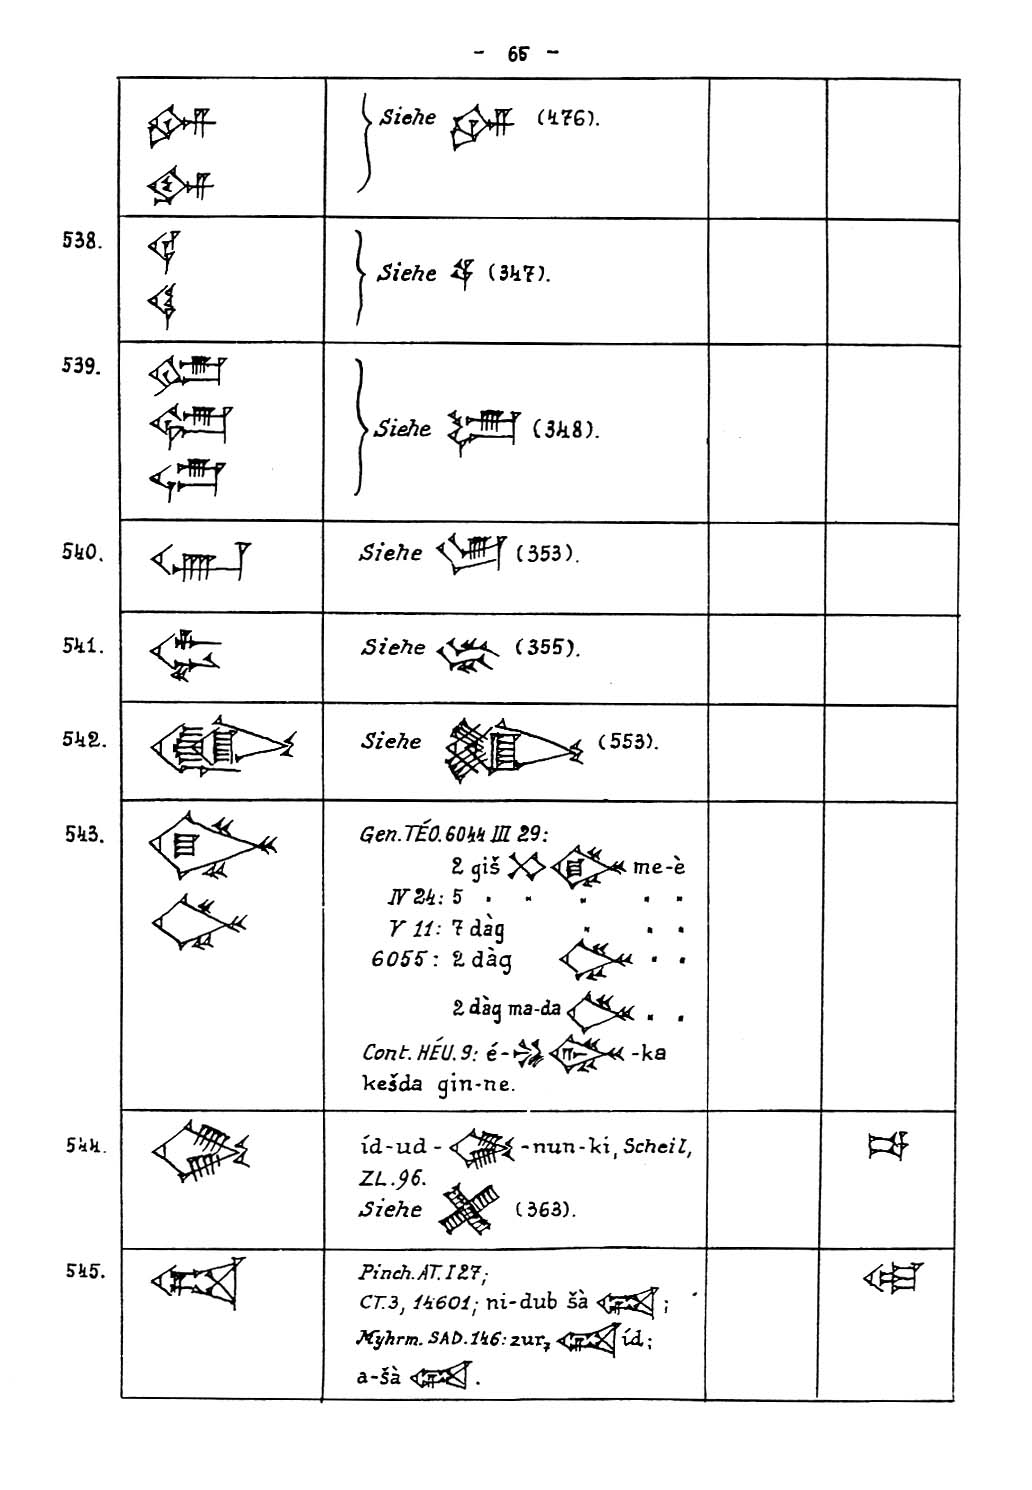 - 65 -
Siehe (476).
538.
Siehe (347).
539.
Siehe (348).
540.
Siehe (353).
541.
Siehe (355).
542.
Siehe (553).
543.
Gen. TÉO. 6044 III 29:
2 giš me-è
IV 24: 5 " " " " "
V 11: 7 dàg " " "
6055: 2 dàg " "
2 dàg ma-da " "
Cont. HÉU. 9: é- -ka
kešda gin-ne.
544.
íd-ud- -nun-ki, Scheil,
ZL. 96.
Siehe (363).
545.
Pinch. AT. I 27;
CT. 3, 14601; ni-dub šà ;
Myhrm. SAD. 146: zur₇ íd;
a-šà .